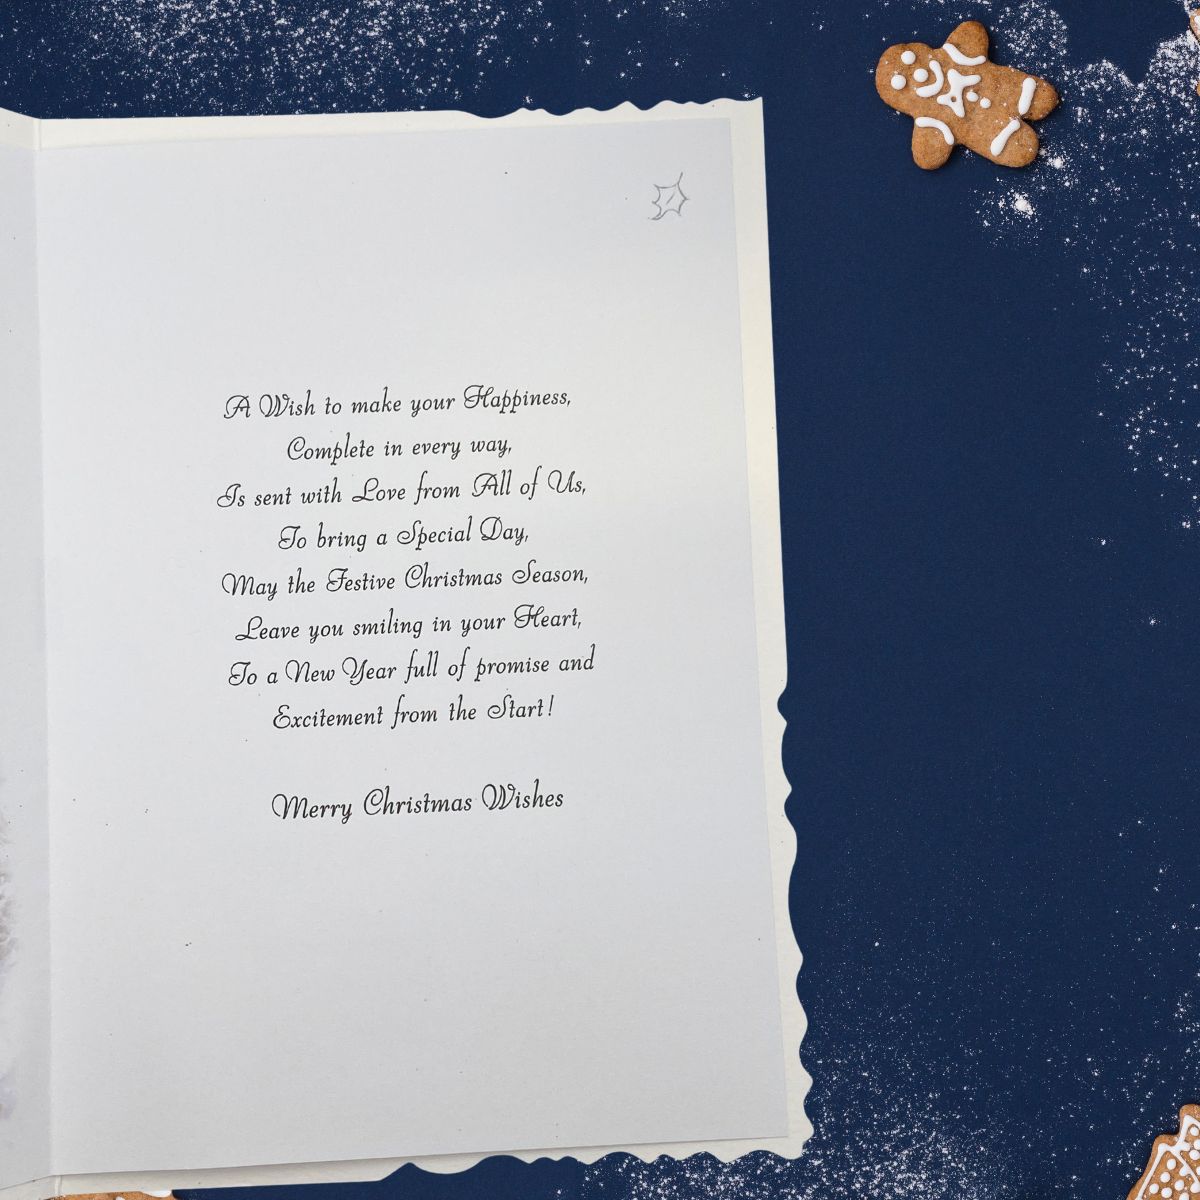 A Wish to make your Happiness,
Complete in every way,
Is sent with Love from All of Us,
To bring a Special Day,
May the Festive Christmas Season,
Leave you smiling in your Heart,
To a New Year full of promise and
Excitement from the Start!
Merry Christmas Wishes